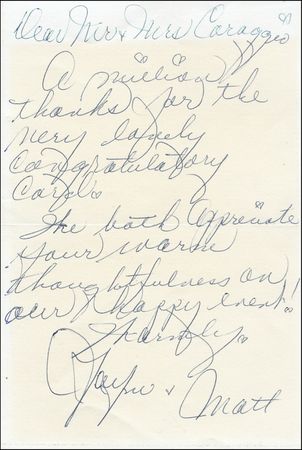 Dear Mr & Mrs Caraggio
A million
thanks for the
very lovely
congratulatory
Card.
We both apreciate
your warm
thoughtfulness on
our happy event!
Warmly,
& Matt